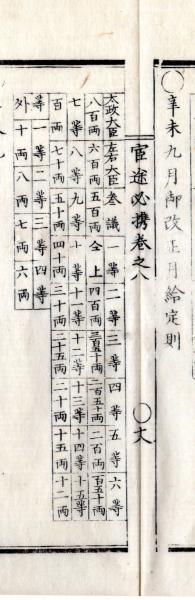 ○辛未九月御改正月給定則
官途必携巻之八
太政大臣 左右大臣 参議 一等 二等 三等 四等 五等 六等
八百両 六百両 五百両 仝上 四百両 三百五十両 二百五十両 二百両 百五十両
七等 八等 九等 十等 十一等 十二等 十三等 十四等 十五等
百両 七十両 五十両 四十両 三十両 二十五両 二十両 十五両 十二両
等 一等 二等 三等 四等
外 十両 八両 七両 六両